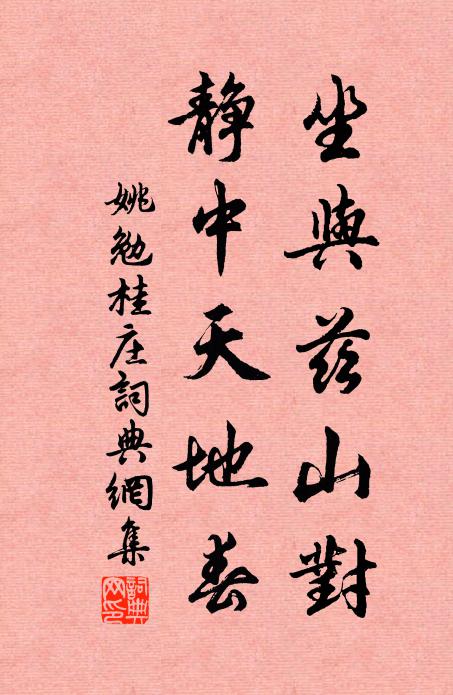 坐與茲山對
靜中天地春
姚勉桂庄詞典網集
詞典网印